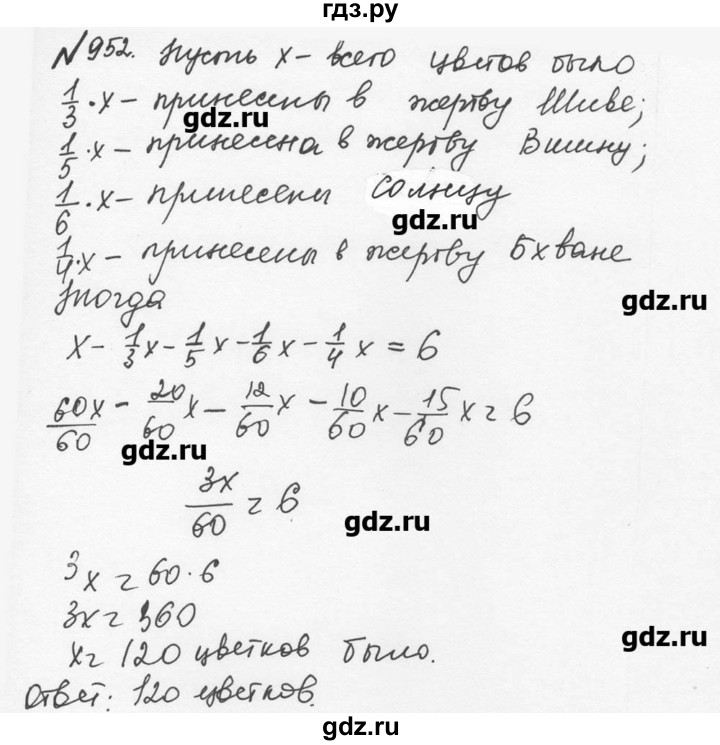 гдз.ру
№952. Пусть x – всего цветов было
1/3 · x – принесены в жертву Шиве;
gdz.ru
1/5 · x – принесена в жертву Вишну;
1/6 · x – принесены Солнцу
gdz.ru
1/4 · x – принесены в жертву Бхване
gdz.ru
Тогда
x – 1/3 x – 1/5 x – 1/6 x – 1/4 x = 6
60x/60 – 20/60 x – 12/60 x – 10/60 x – 15/60 x = 6
gdz.ru
3x/60 = 6
gdz.ru
3x = 60·6
3x = 360
gdz.ru
x = 120 цветков было.
Ответ: 120 цветков.
gdz.ru